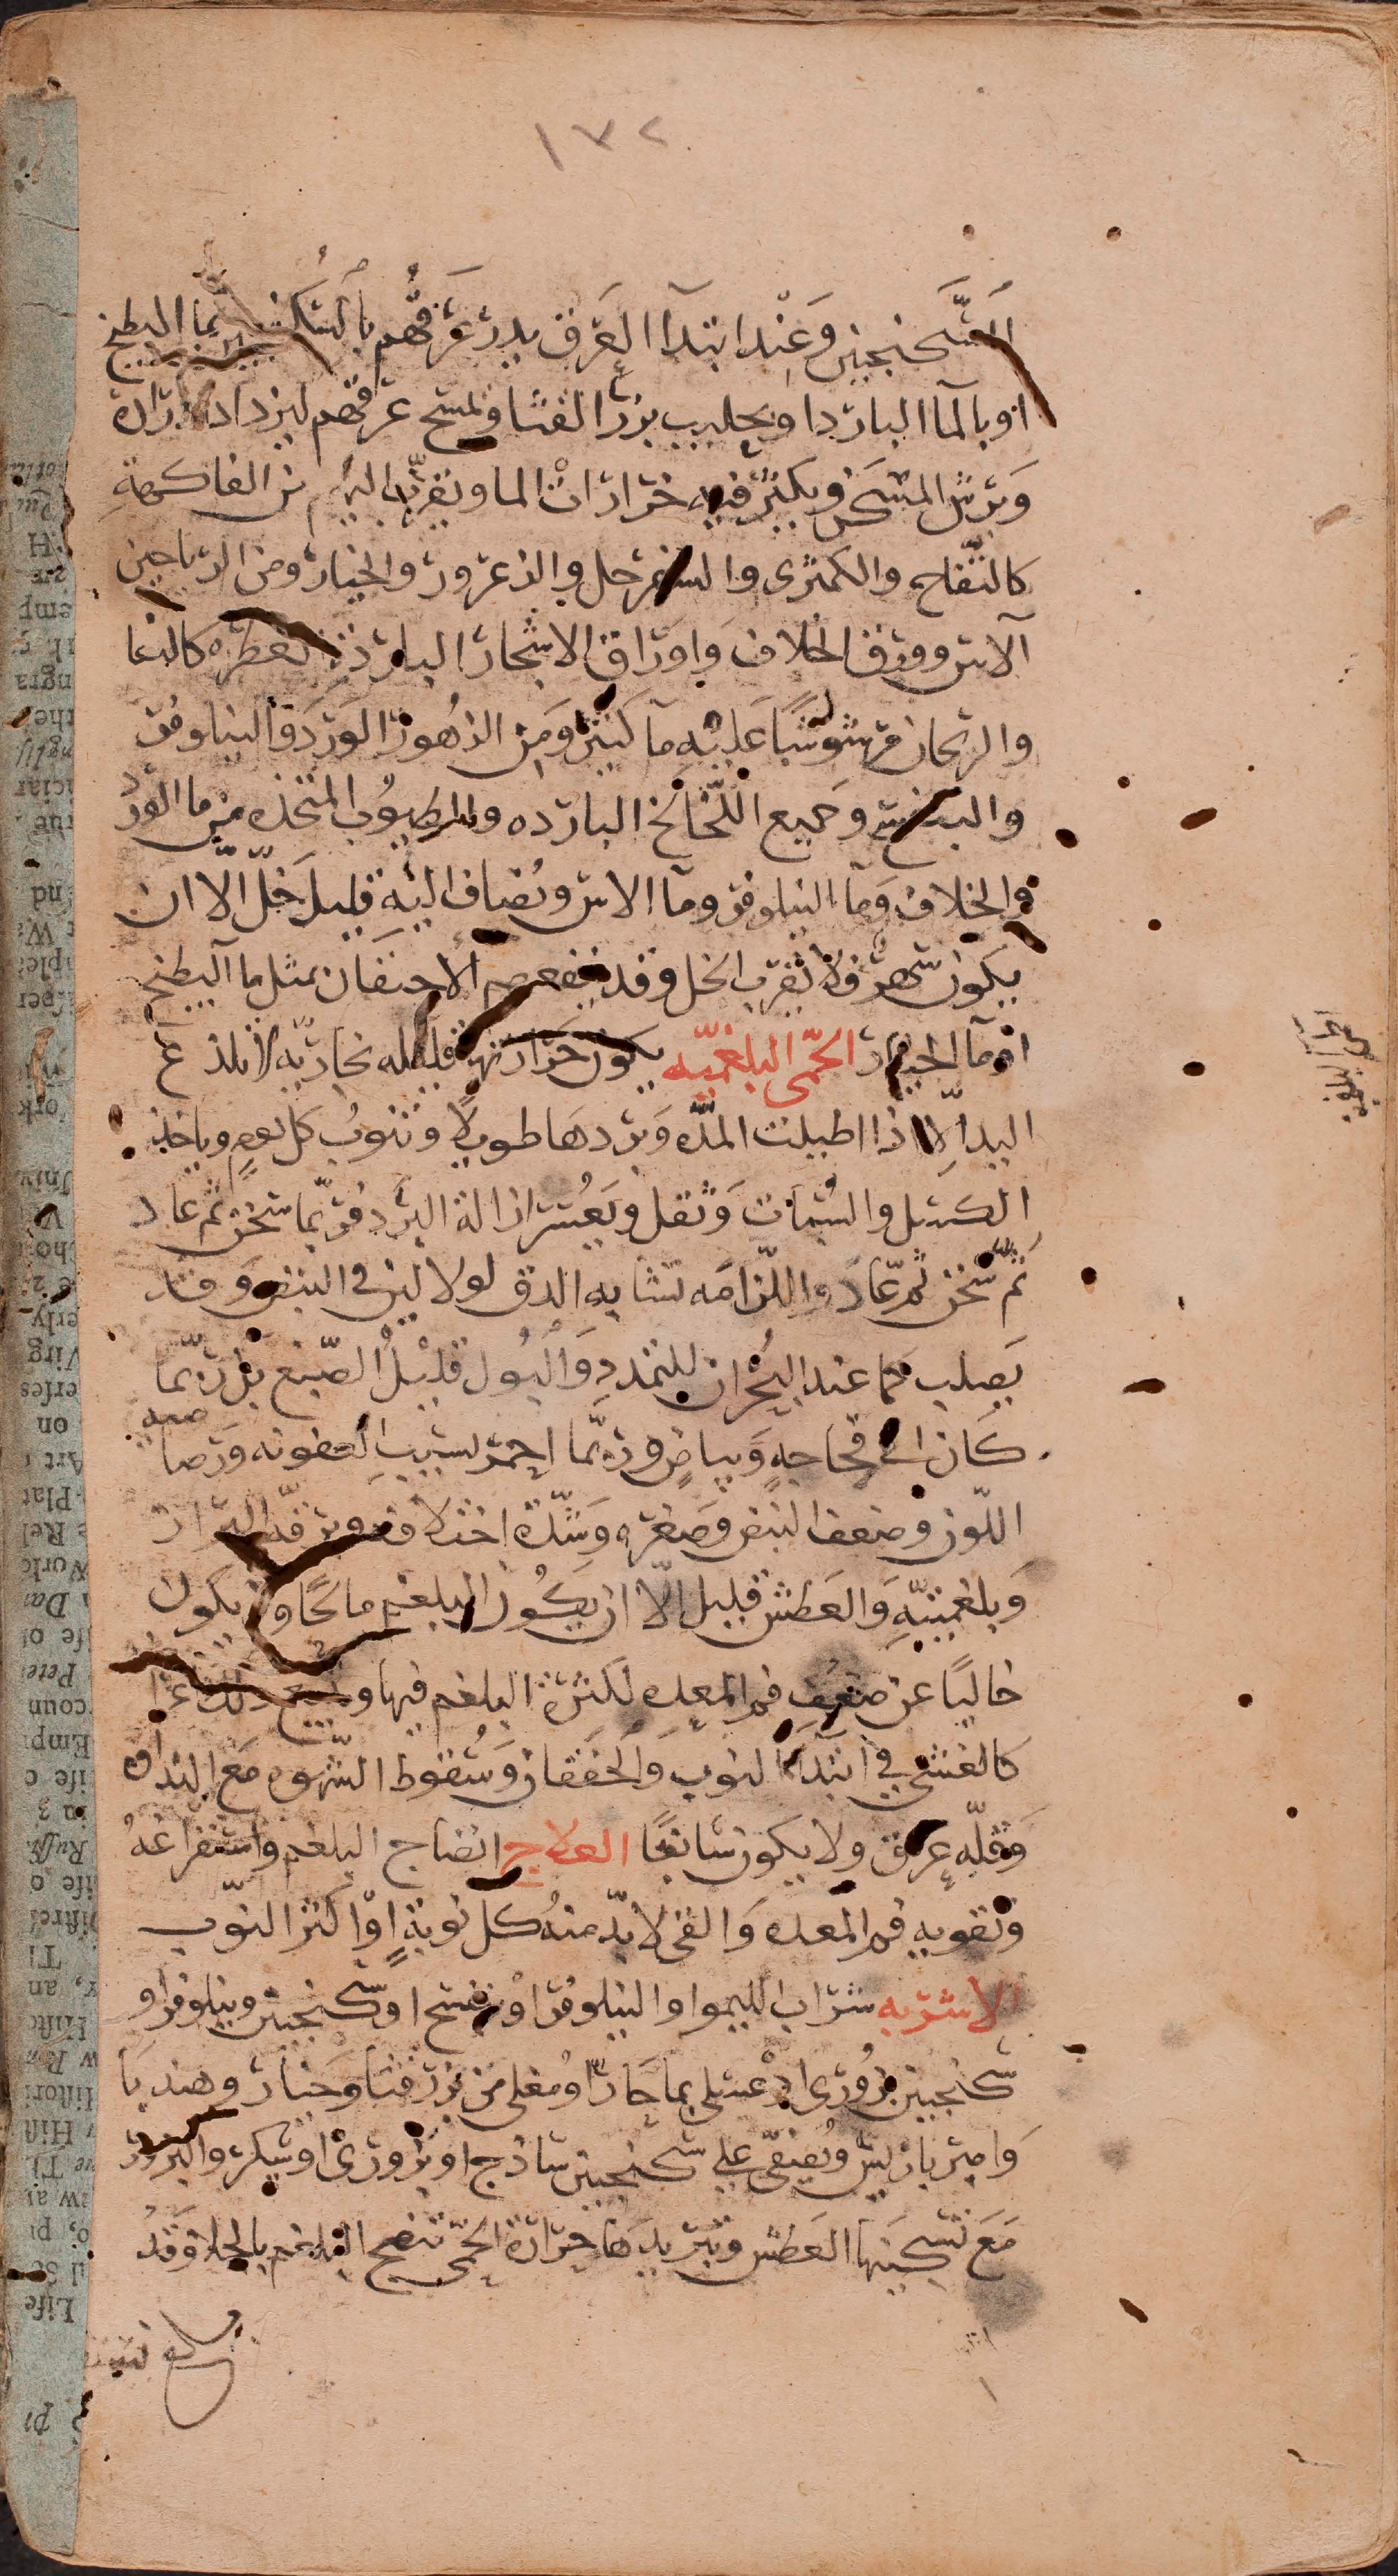 ١٧٢
السكنجبين وعند ابتدآ العرق يدر عرقهم بالسكنجبين بما البطيخ
او بالمآ البارد او بحليب بزر القثا ويمسح عرقهم ليزداد ادرارة
ويرش المسكن ويكثر فيه خرارات الما ويقرب اليهم من الفاكهة
كالتفاح والكمثرى والسفرجل والزعرور والخيار ومن الرياحين
الآس وورق الخلاف واوراق الاشجار الباردة العطره كالنما
والريحان مرشوشا عليه مآ كثير ومن الزهور الورد والنيلوفر
والبنفسج وجميع اللخالخ البارده والطيوب المتخذه من ما الورد
والخلاف ومآ النيلوفر ومآ الاس ويضاف اليه قليل خل الا ان
يكون سهر فلا تقرب الخل وقد ينفعهم الاحتقان بمثل مآ البطيخ
او مآ الخيار الحمى البلغميه يكون حرارتها قليله بخاريه لا تلذع
اليد الا اذا اطيلت المده وبردها طويلا وتنوب كل يوم وياخذ
الكسل والسبات وثقل ويعسر ازالة البرد فربما سخن ثم عاد
ثم سخن ثم عاد واللازمه تشابه الدق لولا لين في النبض وقد
يصلب كما عند البحران للتمدد والبول قليل الصبغ بل ربما
كان الى فجاجه وبياض وربما احمر لسبب العفونه ورصاصيه
اللون وضعف النبض وصغره وشدة اختلافه ورقه البراز
وبلغميته والعطش قليل الا ان يكون البلغم مالحا ولا يكون
خاليا عن ضعف فم المعده لكثرة البلغم فيها ويتبع ذلك
كالغشي في ابتدآ النوب والخفقان وسقوط الشهوه مع النداوه
وقله عرق ولا يكون سابغا العلاج انضاج البلغم واستفراغه
وتقويه فم المعده والقى لا بد منه كل نوبة او اكثر النوب
الاشربه شراب الليموا والنيلوفر او بنفسج او سكنجبين ونيلوفر او
سكنجبين بزورى او عسلى بما حار او مغلى من بزر قثا وخيار وهندبا
وامير باريس ويصفى على سكنجبين ساذج او بزورى او سكر والبزور
مع تسكينها العطش وتبريدها حرارة الحمى تنضج البلغم بالجلا وقد